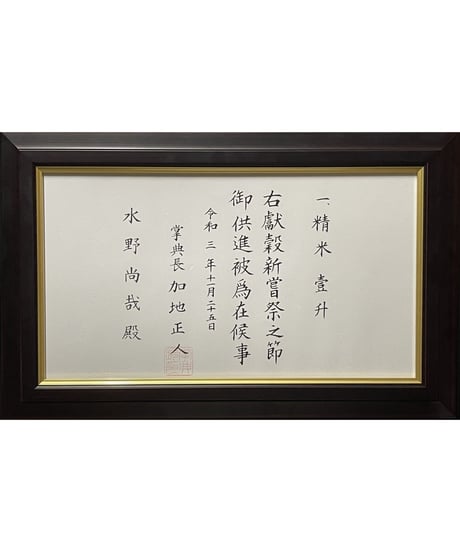 一、精米 壹升
右獻穀新嘗祭之節
御供進被爲在候事
令和三年十一月二十五日
掌典長 加地正人
水野尚哉殿